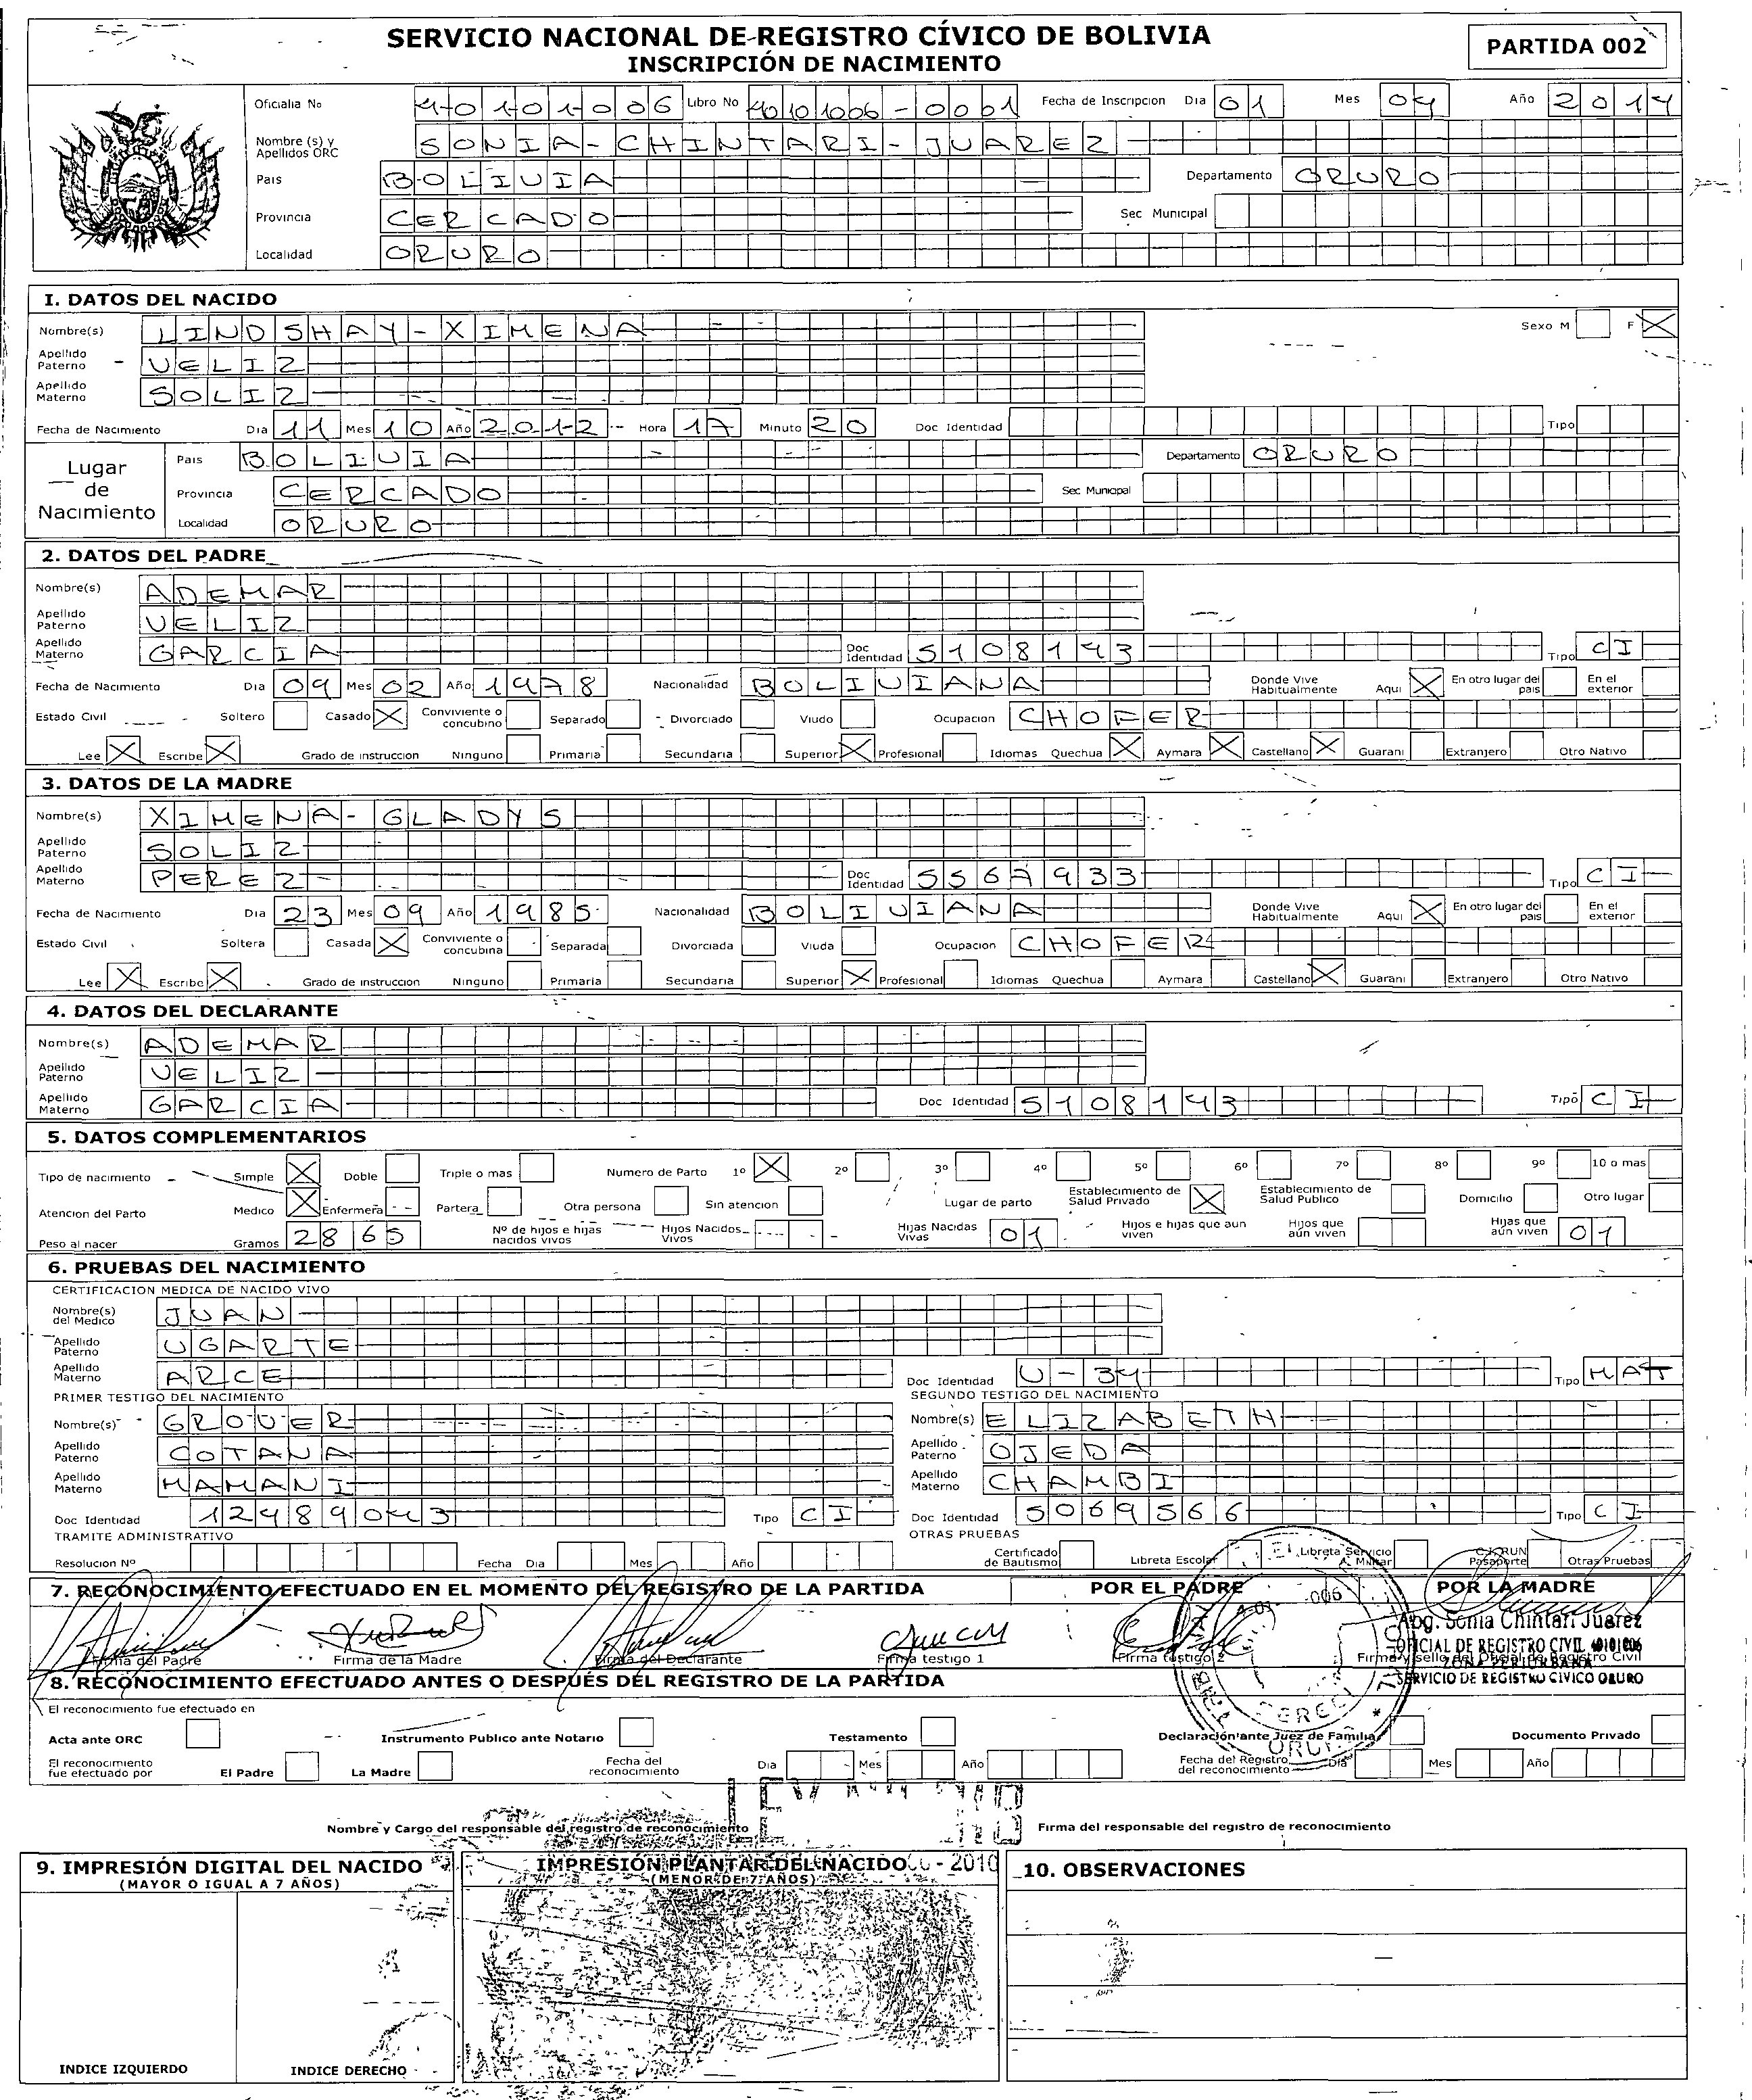 SERVICIO NACIONAL DE REGISTRO CÍVICO DE BOLIVIA
INSCRIPCIÓN DE NACIMIENTO
PARTIDA 002
Oficialia No 40101006 Libro No 40101006-0001 Fecha de Inscripcion Dia 01 Mes 04 Año 2014
Nombre (s) y Apellidos ORC SONIA-CHINTARI-JUAREZ
Pais BOLIVIA Departamento ORURO
Provincia CERCADO Sec Municipal
Localidad ORURO
I. DATOS DEL NACIDO
Nombre(s) LINDSHAY-XIMENA Sexo M F X
Apellido Paterno VELIZ
Apellido Materno SOLIZ
Fecha de Nacimiento Dia 11 Mes 10 Año 2012 Hora 17 Minuto 20 Doc Identidad Tipo
Lugar de Nacimiento
Pais BOLIVIA Departamento ORURO
Provincia CERCADO Sec Municipal
Localidad ORURO
2. DATOS DEL PADRE
Nombre(s) ADEMAR
Apellido Paterno VELIZ
Apellido Materno GARCIA Doc Identidad 5108143 Tipo CI
Fecha de Nacimiento Dia 09 Mes 02 Año 1978 Nacionalidad BOLIVIANA Donde Vive Habitualmente Aqui X En otro lugar del pais En el exterior
Estado Civil Soltero Casado X Conviviente o concubino Separado Divorciado Viudo Ocupacion CHOFER
Lee X Escribe X Grado de instruccion Ninguno Primaria Secundaria Superior X Profesional Idiomas Quechua X Aymara X Castellano X Guarani Extranjero Otro Nativo
3. DATOS DE LA MADRE
Nombre(s) XIMENA-GLADYS
Apellido Paterno SOLIZ
Apellido Materno PEREZ Doc Identidad 5567933 Tipo CI
Fecha de Nacimiento Dia 23 Mes 09 Año 1985 Nacionalidad BOLIVIANA Donde Vive Habitualmente Aqui X En otro lugar del pais En el exterior
Estado Civil Soltera Casada X Conviviente o concubina Separada Divorciada Viuda Ocupacion CHOFER
Lee X Escribe X Grado de instruccion Ninguno Primaria Secundaria Superior X Profesional Idiomas Quechua Aymara Castellano X Guarani Extranjero Otro Nativo
4. DATOS DEL DECLARANTE
Nombre(s) ADEMAR
Apellido Paterno VELIZ
Apellido Materno GARCIA Doc Identidad 5108143 Tipo CI
5. DATOS COMPLEMENTARIOS
Tipo de nacimiento Simple X Doble Triple o mas Numero de Parto 1º X 2º 3º 4º 5º 6º 7º 8º 9º 10 o mas
Atencion del Parto Medico X Enfermera Partera Otra persona Sin atencion Lugar de parto Establecimiento de Salud Privado X Establecimiento de Salud Publico Domicilio Otro lugar
Peso al nacer Gramos 2865 Nº de hijos e hijas nacidos vivos Hijos Nacidos Vivos Hijas Nacidas Vivas 01 Hijos e hijas que aun viven Hijos que aún viven Hijas que aún viven 01
6. PRUEBAS DEL NACIMIENTO
CERTIFICACION MEDICA DE NACIDO VIVO
Nombre(s) del Medico JUAN
Apellido Paterno UGARTE
Apellido Materno ARCE Doc Identidad U-34 Tipo MAT
PRIMER TESTIGO DEL NACIMIENTO SEGUNDO TESTIGO DEL NACIMIENTO
Nombre(s) GROVER Nombre(s) ELIZABETH
Apellido Paterno COTANA Apellido Paterno OJEDA
Apellido Materno MAMANI Apellido Materno CHAMBI
Doc Identidad 12489043 Tipo CI Doc Identidad 5069566 Tipo CI
TRAMITE ADMINISTRATIVO OTRAS PRUEBAS
Resolucion Nº Fecha Dia Mes Año Certificado de Bautismo Libreta Escolar Libreta Servicio Militar Pasaporte Otras Pruebas
7. RECONOCIMIENTO EFECTUADO EN EL MOMENTO DEL REGISTRO DE LA PARTIDA POR EL PADRE POR LA MADRE
Abg. Sonia Chintari Juarez
OFICIAL DE REGISTRO CIVIL 40101006
Firma del Padre Firma de la Madre Firma del Declarante Firma testigo 1 Firma testigo 2 Firma y sello del Oficial de Registro Civil
ZONA PERIURBANA
SERVICIO DE REGISTRO CIVICO ORURO
8. RECONOCIMIENTO EFECTUADO ANTES O DESPUES DEL REGISTRO DE LA PARTIDA
El reconocimiento fue efectuado en
Acta ante ORC Instrumento Publico ante Notario Testamento Declaración ante Juez de Familia Documento Privado
El reconocimiento fue efectuado por El Padre La Madre Fecha del reconocimiento Dia Mes Año Fecha del Registro del reconocimiento Dia Mes Año
Nombre y Cargo del responsable del registro de reconocimiento Firma del responsable del registro de reconocimiento
9. IMPRESIÓN DIGITAL DEL NACIDO
(MAYOR O IGUAL A 7 AÑOS)
IMPRESIÓN PLANTAR DEL NACIDO
(MENOR DE 7 AÑOS)
- 2010
10. OBSERVACIONES
INDICE IZQUIERDO INDICE DERECHO